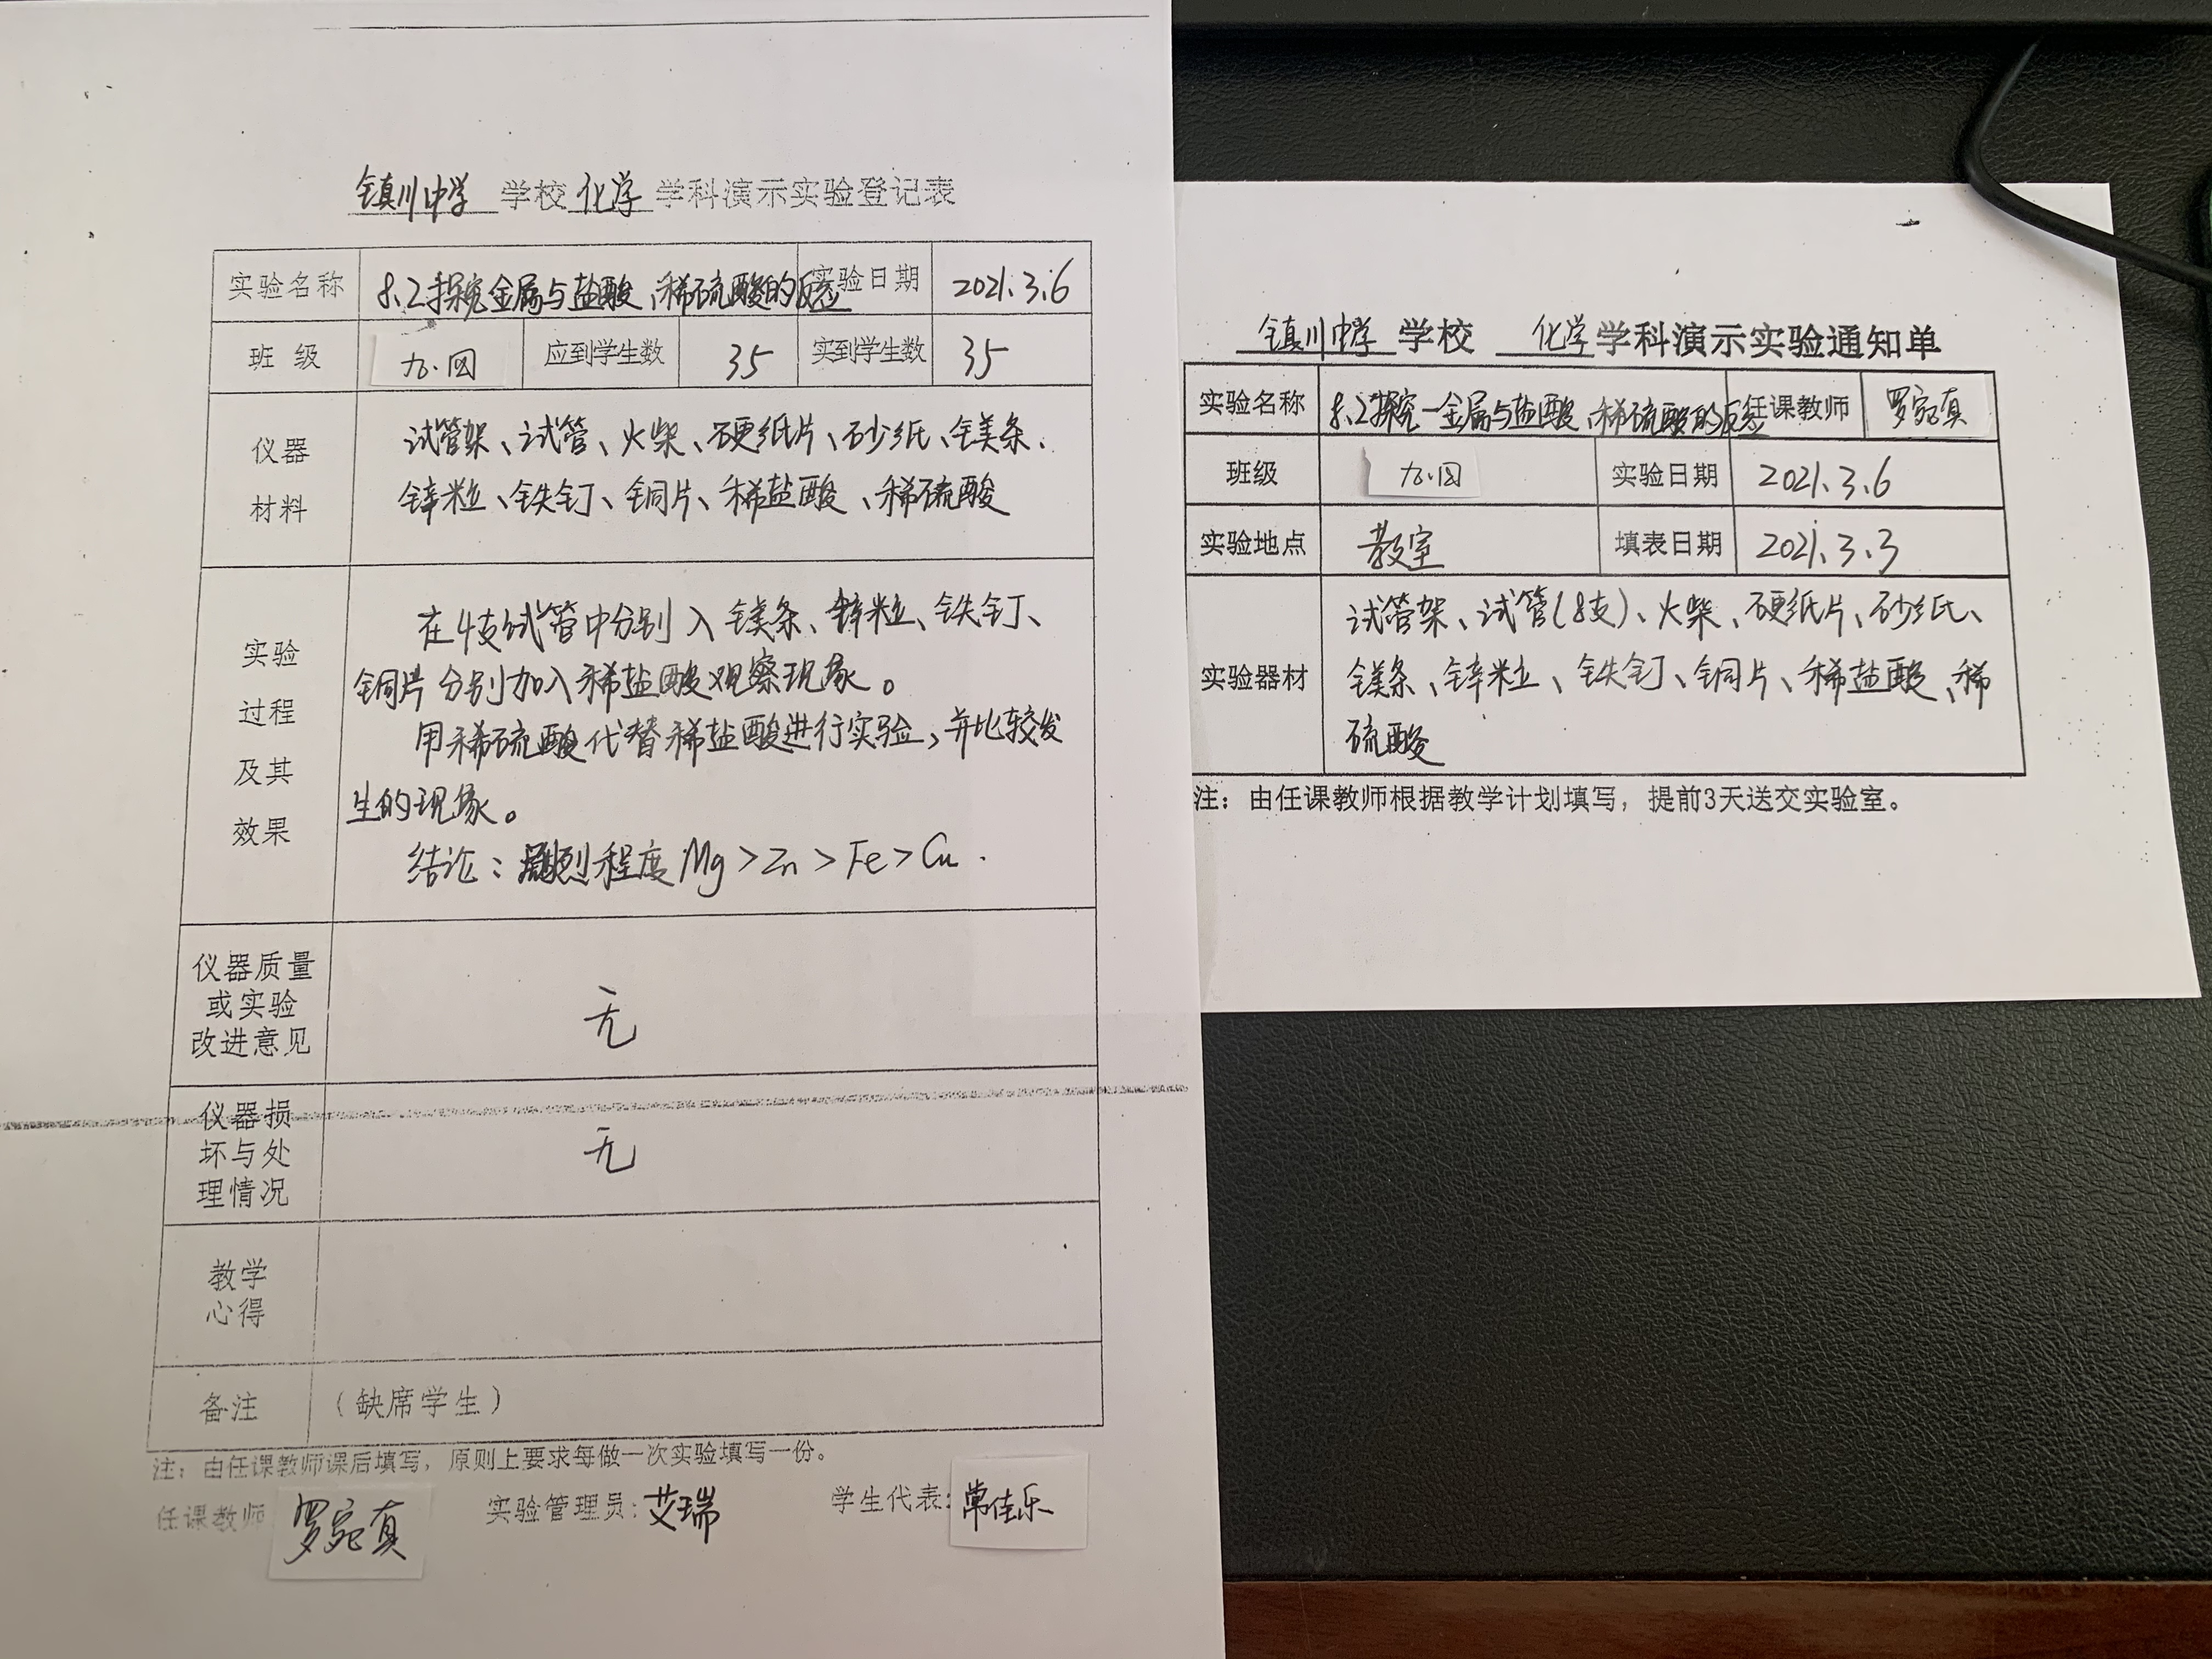 镇川中学 学校 化学 学科演示实验登记表
实验名称 8.2探究金属与盐酸、稀硫酸的反应 实验日期 2021.3.6
班 级 九.四 应到学生数 35 实到学生数 35
仪器
材料
试管架、试管、火柴、硬纸片、砂纸、镁条、
锌粒、铁钉、铜片、稀盐酸、稀硫酸
实验
过程
及其
效果
在4支试管中分别入镁条、锌粒、铁钉、
铜片分别加入稀盐酸观察现象。
用稀硫酸代替稀盐酸进行实验，并比较发
生的现象。
结论：剧烈程度Mg>Zn>Fe>Cu.
仪器质量
或实验
改进意见
无
仪器损
坏与处
理情况
无
教学
心得
备注 （缺席学生）
注：由任课教师课后填写，原则上要求每做一次实验填写一份。
任课教师 罗宛真 实验管理员：艾瑞 学生代表：常佳乐
镇川中学 学校 化学 学科演示实验通知单
实验名称 8.2探究一金属与盐酸、稀硫酸的反应 任课教师 罗宛真
班级 九.四 实验日期 2021.3.6
实验地点 教室 填表日期 2021.3.3
实验器材
试管架、试管(8支)、火柴、硬纸片、砂纸、
镁条、锌粒、铁钉、铜片、稀盐酸、稀
硫酸
注：由任课教师根据教学计划填写，提前3天送交实验室。